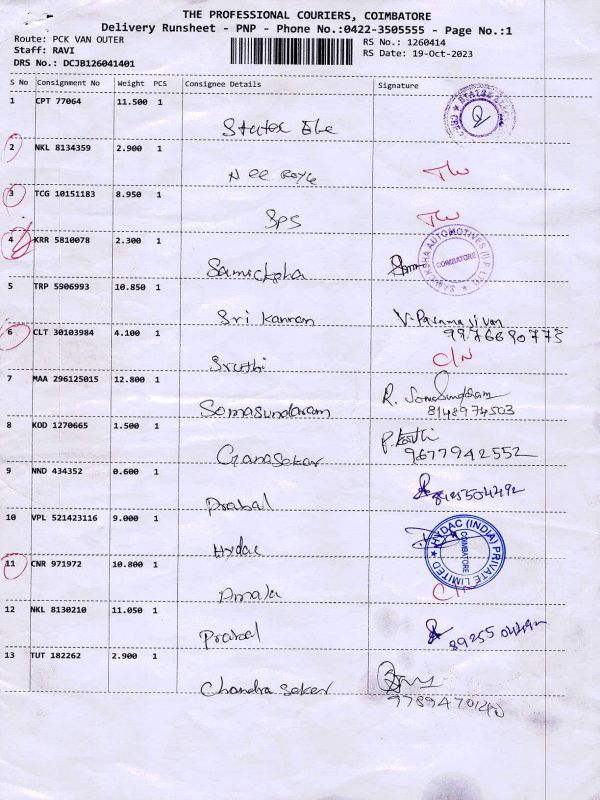 THE PROFESSIONAL COURIERS, COIMBATORE
Delivery Runsheet - PNP - Phone No.:0422-3505555 - Page No.:1
Route: PCK VAN OUTER
RS No.: 1260414
Staff: RAVI
RS Date: 19-Oct-2023
DRS No.: DCJB126041401
S No Consignment No Weight PCS Consignee Details Signature
1 CPT 77064 11.500 1
2 NKL 8134359 2.900 1
3 TCG 10151183 8.950 1
SPS
4 KRR 5810078 2.300 1
SAMIKSHA AUTOMOTIVES (I) P LTD COIMBATORE
5 TRP 5906993 10.850 1
Sri Kannan
9976690773
6 CLT 30103984 4.100 1
Sruthi C/N
7 MAA 296125015 12.800 1
Somasundaram R. Somasundaram
8148974503
8 KOD 1270665 1.500 1
Ganasekar
9677942552
9 NND 434352 0.600 1
Prabal
10 VPL 521423116 9.000 1
Hydac HYDAC (INDIA) PRIVATE LIMITED COIMBATORE
11 CNR 971972 10.800 1
Amala
12 NKL 8130210 11.050 1
Prabal
13 TUT 182262 2.900 1
Chandra Sekar